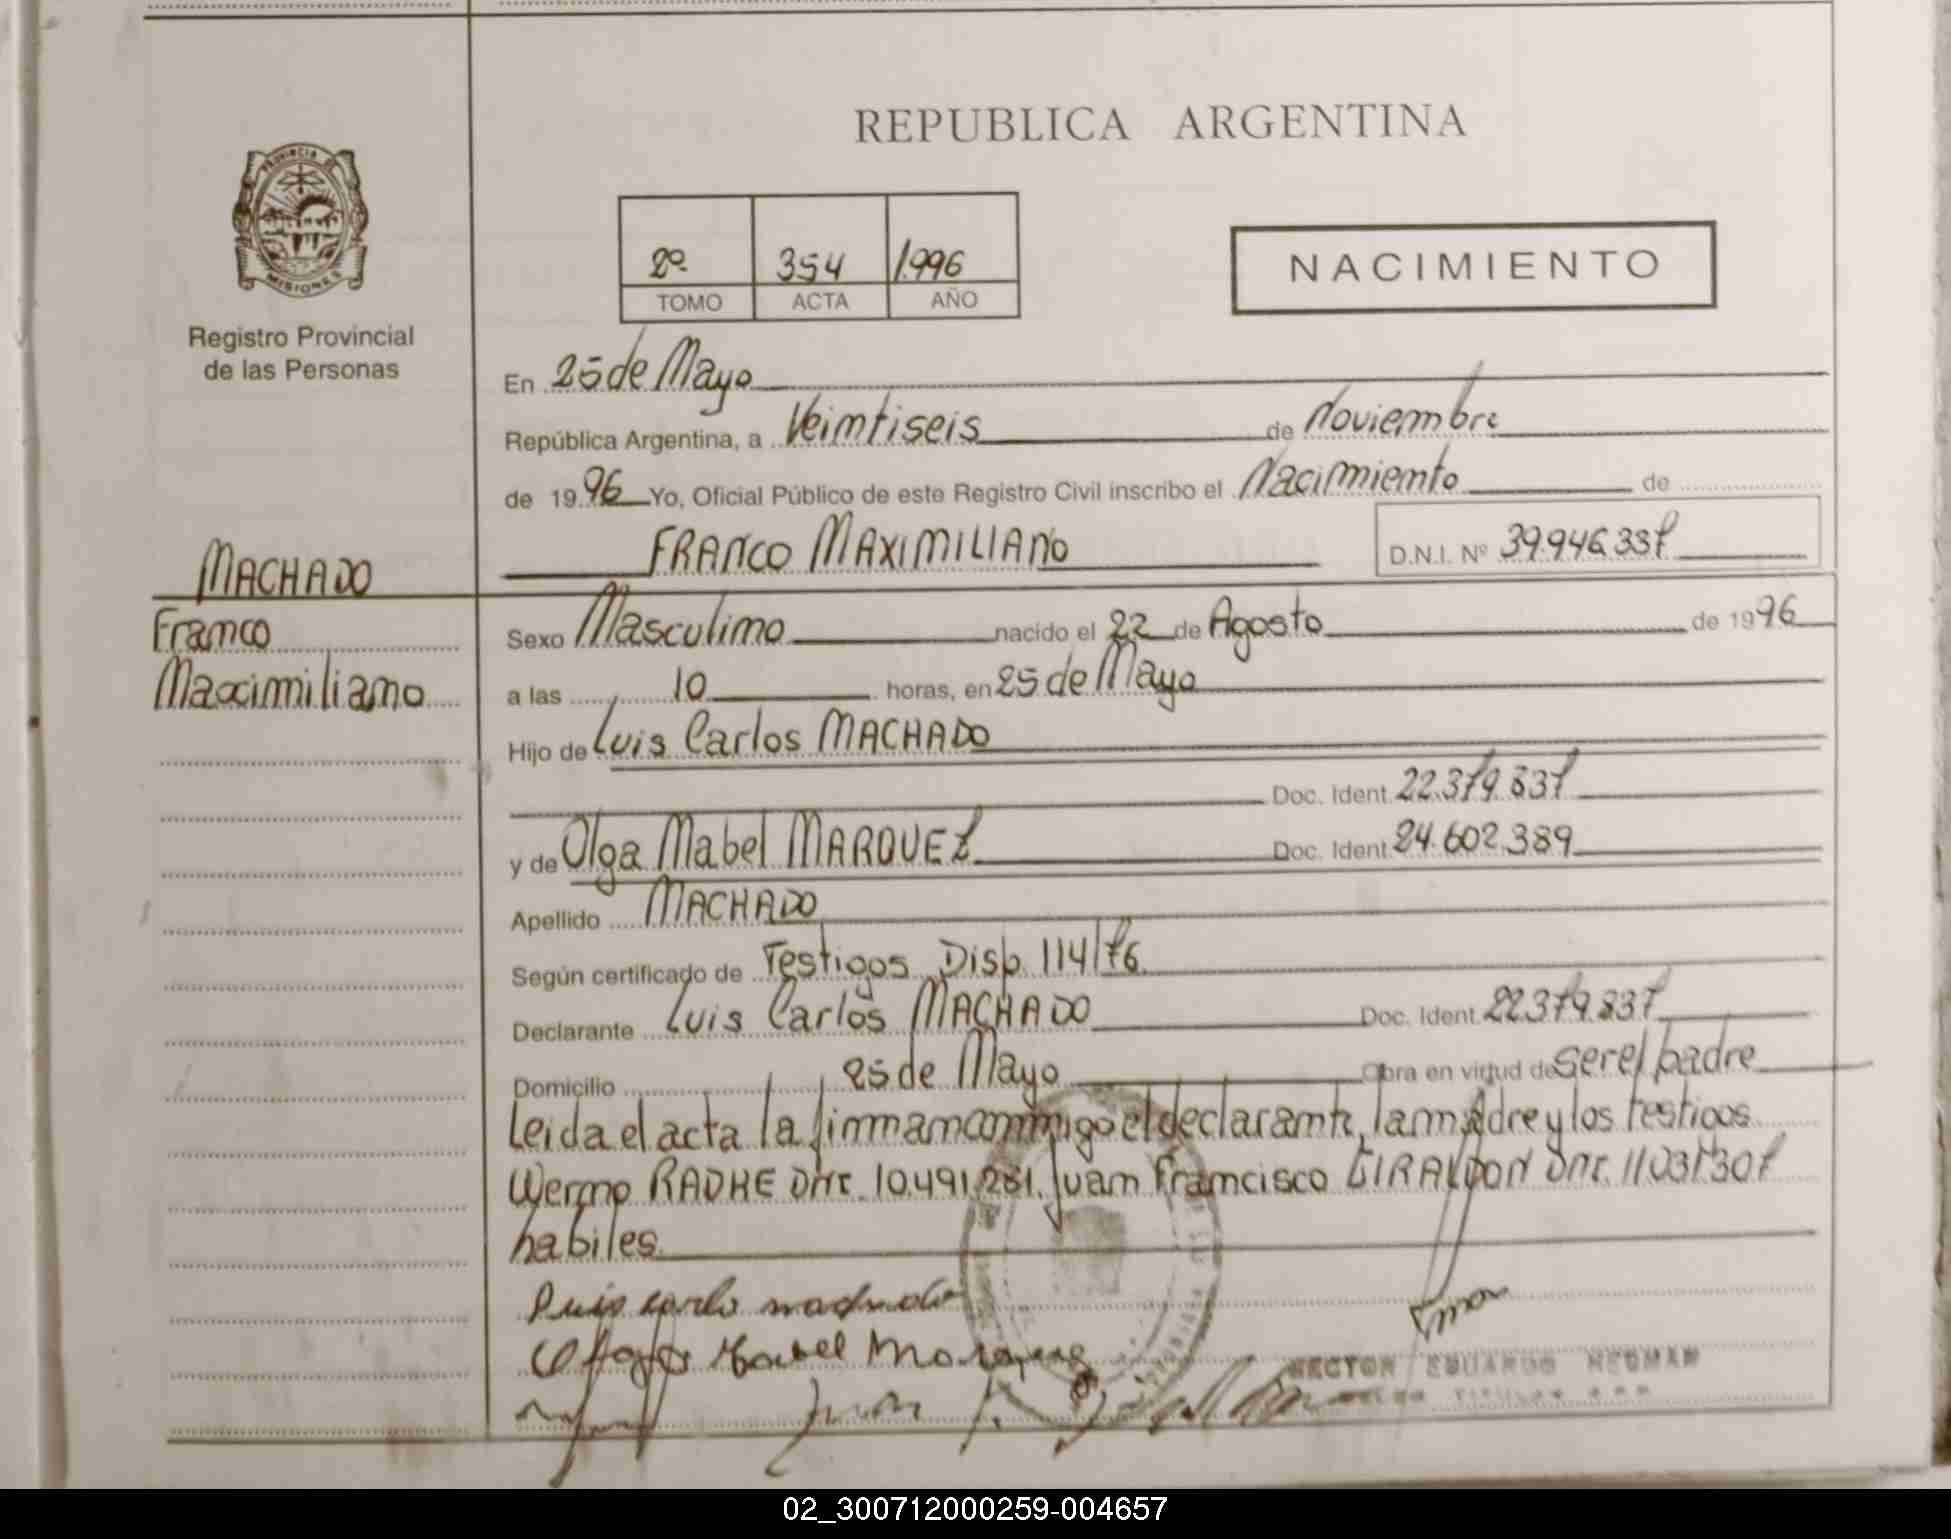 REPUBLICA ARGENTINA
PROVINCIA DE
MISIONES
Registro Provincial
de las Personas
2º 354 1996
TOMO ACTA AÑO
NACIMIENTO
En 25 de Mayo
República Argentina, a Veintiseis de Noviembre
de 1996 Yo, Oficial Público de este Registro Civil inscribo el Nacimiento de
FRANCO MAXIMILIANO D.N.I. Nº 39.946.337
MACHADO
Franco
Maximiliano
Sexo Masculino nacido el 22 de Agosto de 1996
a las 10 horas, en 25 de Mayo
Hijo de Luis Carlos MACHADO
Doc. Ident. 22.379.837
y de Olga Mabel MARQUEZ Doc. Ident. 24.602.389
Apellido MACHADO
Según certificado de Testigos Disp. 114/76
Declarante Luis Carlos MACHADO Doc. Ident. 22.379.837
Domicilio 25 de Mayo Obra en virtud de ser el padre
Leida el acta la firman conmigo el declarante, la madre y los testigos
Werno RADKE DNI. 10.491.261. Juan Francisco DNI. 11.037.307
habiles
Luis Carlo Machado
Mabel
HECTOR EDUARDO NEUMAN
02_300712000259-004657